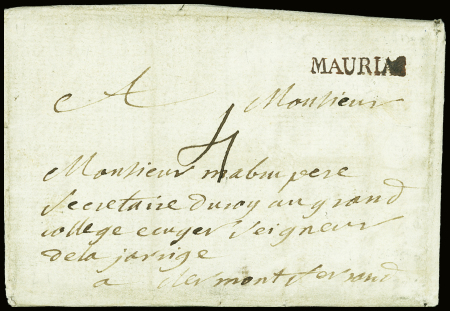 MAURIAC
A Monsieur
4
Monsieur mabru pere
Secretaire du roy au grand
college ecuyer Seigneur
de la jarrige
a clermont ferrand